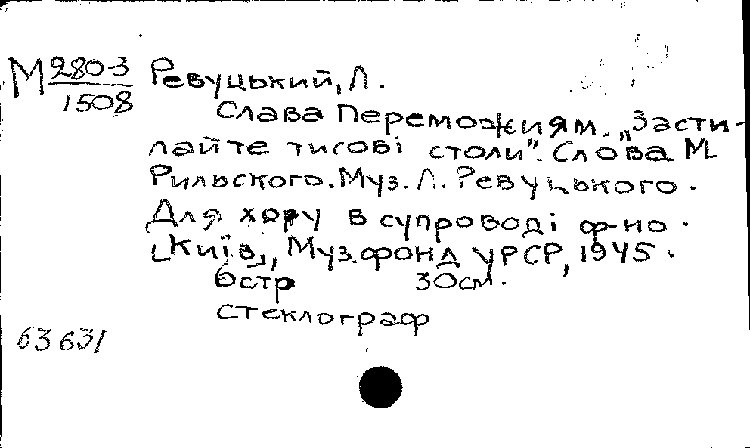 М 280-3/1508 Ревуцький, Л.
Слава Переможцям. „Засти-
лайте тисові столи”. Слова М.
Рильского. Муз. Л. Ревуцького.
Для хору в супроводі ф-но.
[Київ], Муз.фонд УРСР, 1945.
6стр 30см.
стеклограф
63631